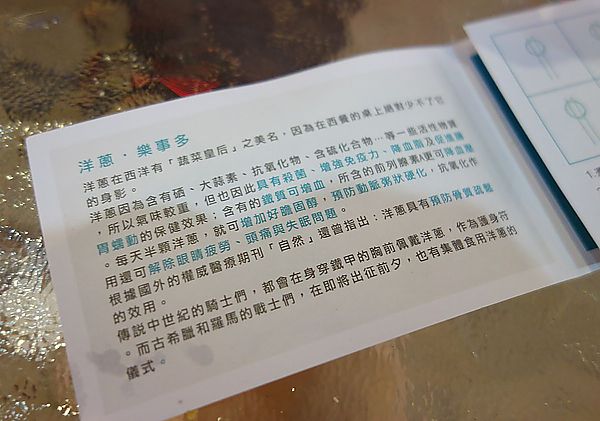 洋蔥．樂事多
洋蔥在西洋有「蔬菜皇后」之美名，因為在西餐的桌上絕對少不了它
的身影。
洋蔥因為含有硒、大蒜素、抗氧化物、含硫化合物…等一些活性物質
，所以氣味較重，但也因此具有殺菌、增強免疫力、降血脂及促進腸
胃蠕動的保健效果；含有的鐵質可增血，所含的前列腺素A更可降血壓
。每天半顆洋蔥，就可增加好膽固醇，預防動脈粥狀硬化，抗氧化作
用還可解除眼睛疲勞、頭痛與失眠問題。
根據國外的權威醫療期刊「自然」還曾指出：洋蔥具有預防骨質疏鬆
的效用。
傳說中世紀的騎士們，都會在身穿鐵甲的胸前佩戴洋蔥，作為護身符
。而古希臘和羅馬的戰士們，在即將出征前夕，也有集體食用洋蔥的
儀式。